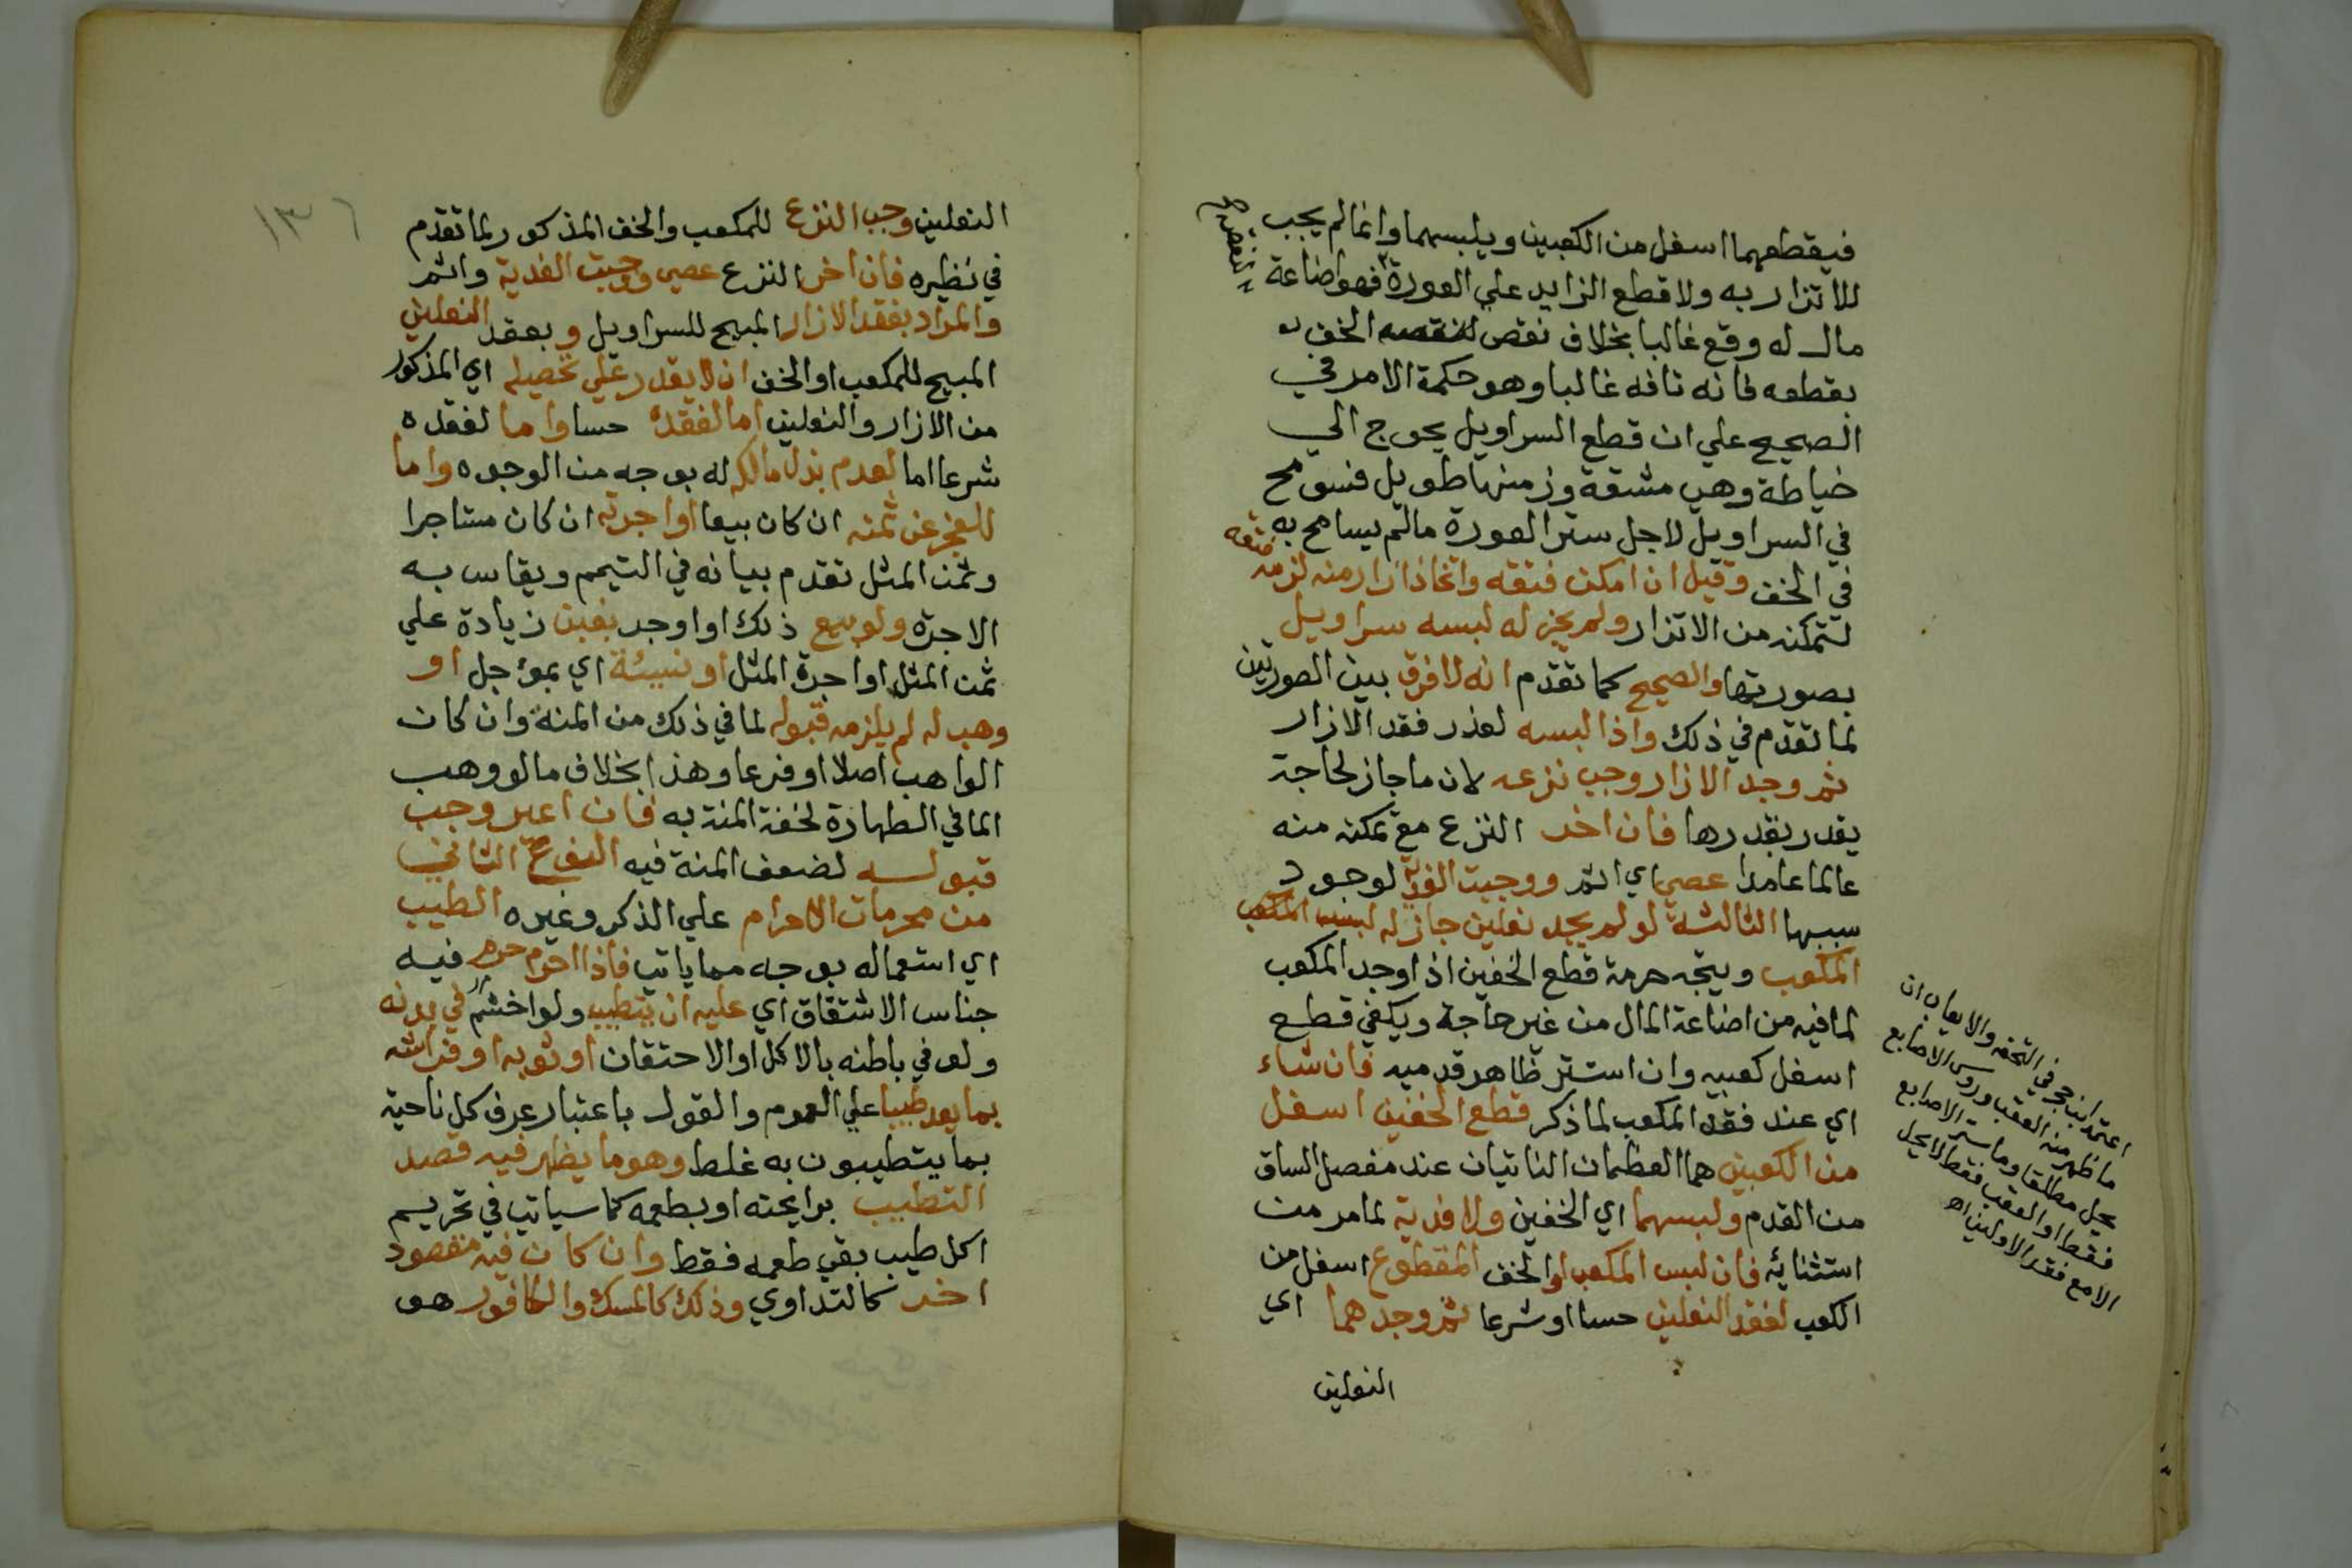 فيقطعهما اسفل من الكعبين ويلبسهما وانما لم يجب
للاتزار به ولا قطع الزايد علي العورة فهو اضاعة
مال له وقع غالبا بخلاف نقص الخف
بقطعه فانه تافه غالبا وهو حكمة الامر في
الصحيح علي ان قطع السراويل يحوج الي
خياطة وهي مشقة وزمنها طويل فسومح
في السراويل لاجل ستر العورة مالم يسامح به
في الخف وقيل ان امكن فتقه واتخاذ ازار منه لزمه فتقه
لتمكنه من الاتزار ولم يجز له لبسه سراويل
بصورتها والصحيح كما تقدم انه لا فرق بين الصورتين
لما تقدم في ذلك واذا لبسه لعذر فقد الازار
ثم وجد الازار وجب نزعه لان ما جاز لحاجة
يقدر بقدرها فان اخر النزع مع تمكنه منه
عالما عامدا عصي اي اثم ووجبت الفدية لوجود
سببها الثالثة لو لم يجد نعلين جاز له لبس المكعب
المكعب ويتجه حرمة قطع الخفين اذا وجد المكعب
لما فيه من اضاعة المال من غير حاجة ويكفي قطع
اسفل كعبيه وان استتر ظاهر قدميه فان شاء
اي عند فقد المكعب لما ذكر قطع الخفين اسفل
من الكعبين هما العظمان الناتيان عند مفصل الساق
من القدم ولبسهما اي الخفين ولا فدية لما مر من
استثنائه فان لبس المكعب او الخف المقطوع اسفل من
الكعب لفقد النعلين حسا او شرعا ثم وجدهما اي
النعلين
اعتمد ابن حجر في التحفه والايعاب ان
ما ظهر منه العقب ورؤس الاصابع
يحل مطلقا وما ستر الاصابع
فقط او العقب فقط لا يحل
الا مع فقد الاولين اه
١٣٦
النعلين وجب النزع للمكعب والخف المذكور لما تقدم
في نظيره فان اخر النزع عصي ووجبت الفدية واثم
والمراد بفقد الازار المبيح للسراويل وبفقد النعلين
المبيح للمكعب او الخف ان لا يقدر علي تحصيله اي المذكور
من الازار والنعلين اما لفقده حسا واما لفقده
شرعا اما لعدم بذل مالكه له بوجه من الوجوه واما
للعجز عن ثمنه ان كان بيعا او اجرته ان كان مستاجرا
وثمن المثل تقدم بيانه في التيمم ويقاس به
الاجرة ولو بيع ذلك او اوجر بغبن زيادة علي
ثمن المثل او اجرة المثل او نسيئة اي بمؤجل او
وهب له لم يلزمه قبوله لما في ذلك من المنة وان كان
الواهب اصلا او فرعا وهذا بخلاف ما لو وهب
الما في الطهارة لخفة المنة به فان اعير وجب
قبوله لضعف المنة فيه النوع الثاني
من محرمات الاحرام علي الذكر وغيره الطيب
اي استعماله بوجه مما ياتي فاذا احرم حرم فيه
جناس الاشتقاق اي عليه ان يتطيب ولو اخشم في بدنه
ولو في باطنه بالاكل او الاحتقان او ثوبه او فراشه
بما يعد طيبا علي العموم والقول باعتبار عرف كل ناحية
بما يتطيبون به غلط وهو ما يظهر فيه قصد
التطيب برايحته او بطعمه كما سياتي في تحريم
اكل طيب بقي طعمه فقط وان كان فيه مقصود
اخر كالتداوي وذلك كالمسك والكافور هو